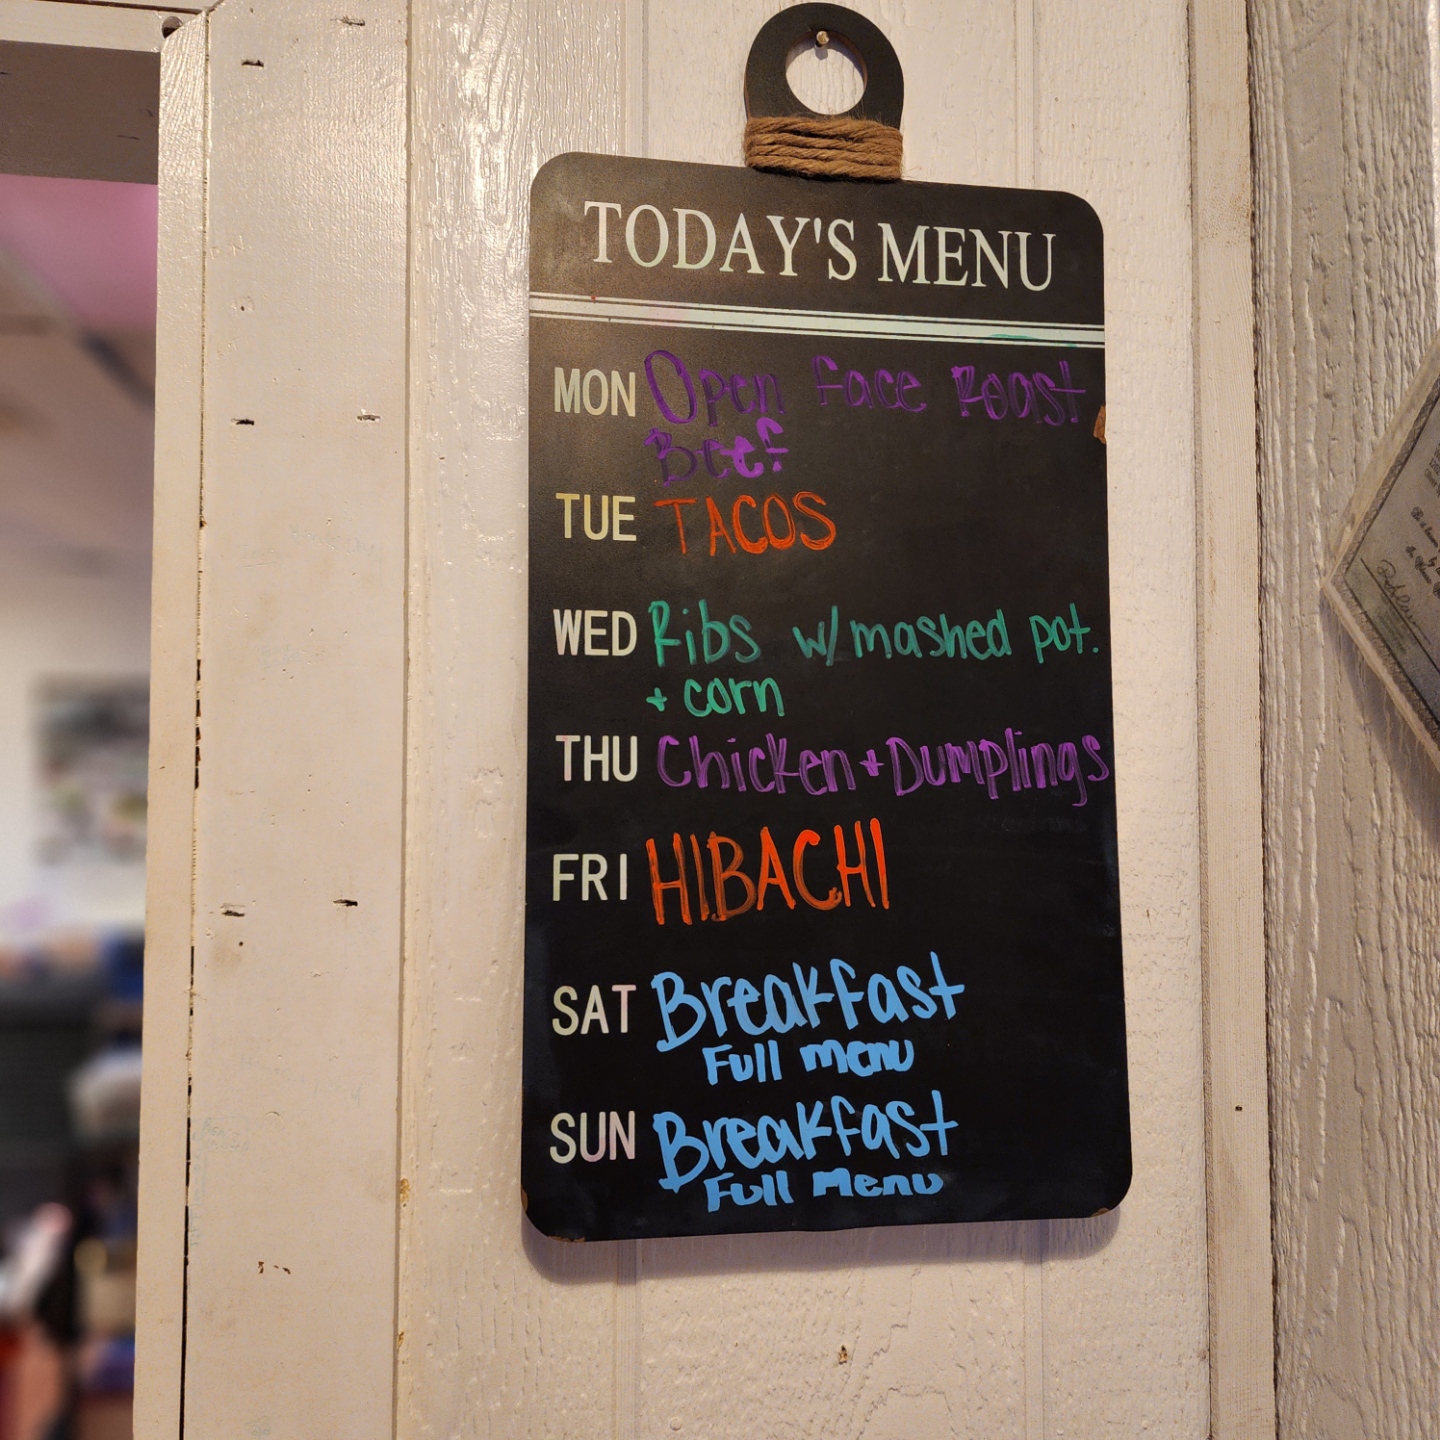 TODAY'S MENU
MON Open face Roast
Beef
TUE TACOS
WED Ribs w/mashed pot.
+ corn
THU Chicken + Dumplings
FRI HIBACHI
SAT Breakfast
Full menu
SUN Breakfast
Full Menu